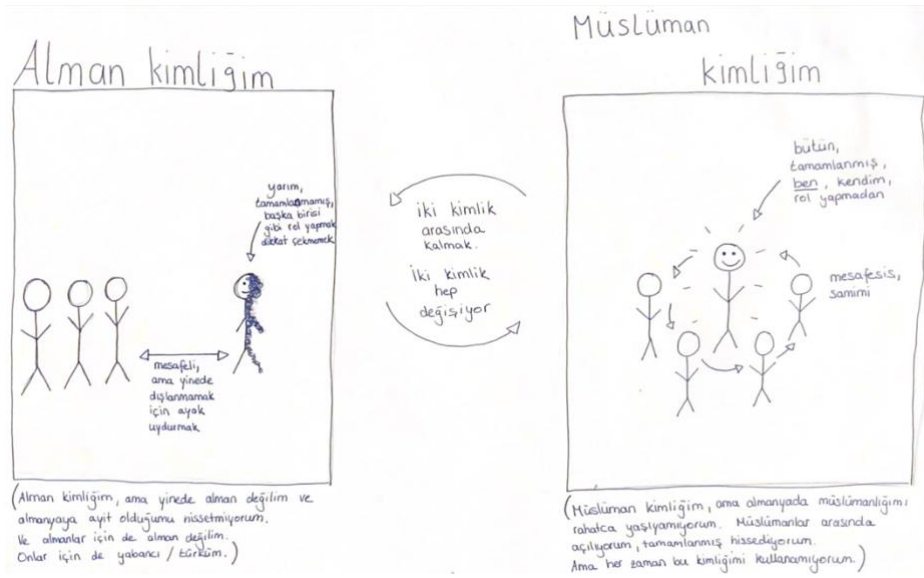 Alman kimliğim
yarım,
tamamlanmamış,
başka birisi
gibi rol yapmak
dikkat çekmemek
mesafeli,
ama yinede
dışlanmamak
için ayak
uydurmak
(Alman kimliğim, ama yinede alman değilim ve
almanyaya ayit olduğumu hissetmiyorum.
Ve almanlar için de alman değilim.
Onlar için de yabancı / türküm.)
iki kimlik
arasında
kalmak.
iki kimlik
hep
değişiyor
Müslüman
kimliğim
bütün,
tamamlanmış,
ben, kendim,
rol yapmadan
mesafesis,
samimi
(Müslüman kimliğim, ama almanyada müslümanlığımı
rahatca yaşıyamıyorum. Müslümanlar arasında
açılıyorum, tamamlanmış hissediyorum.
Ama her zaman bu kimliğimi kullanamıyorum.)